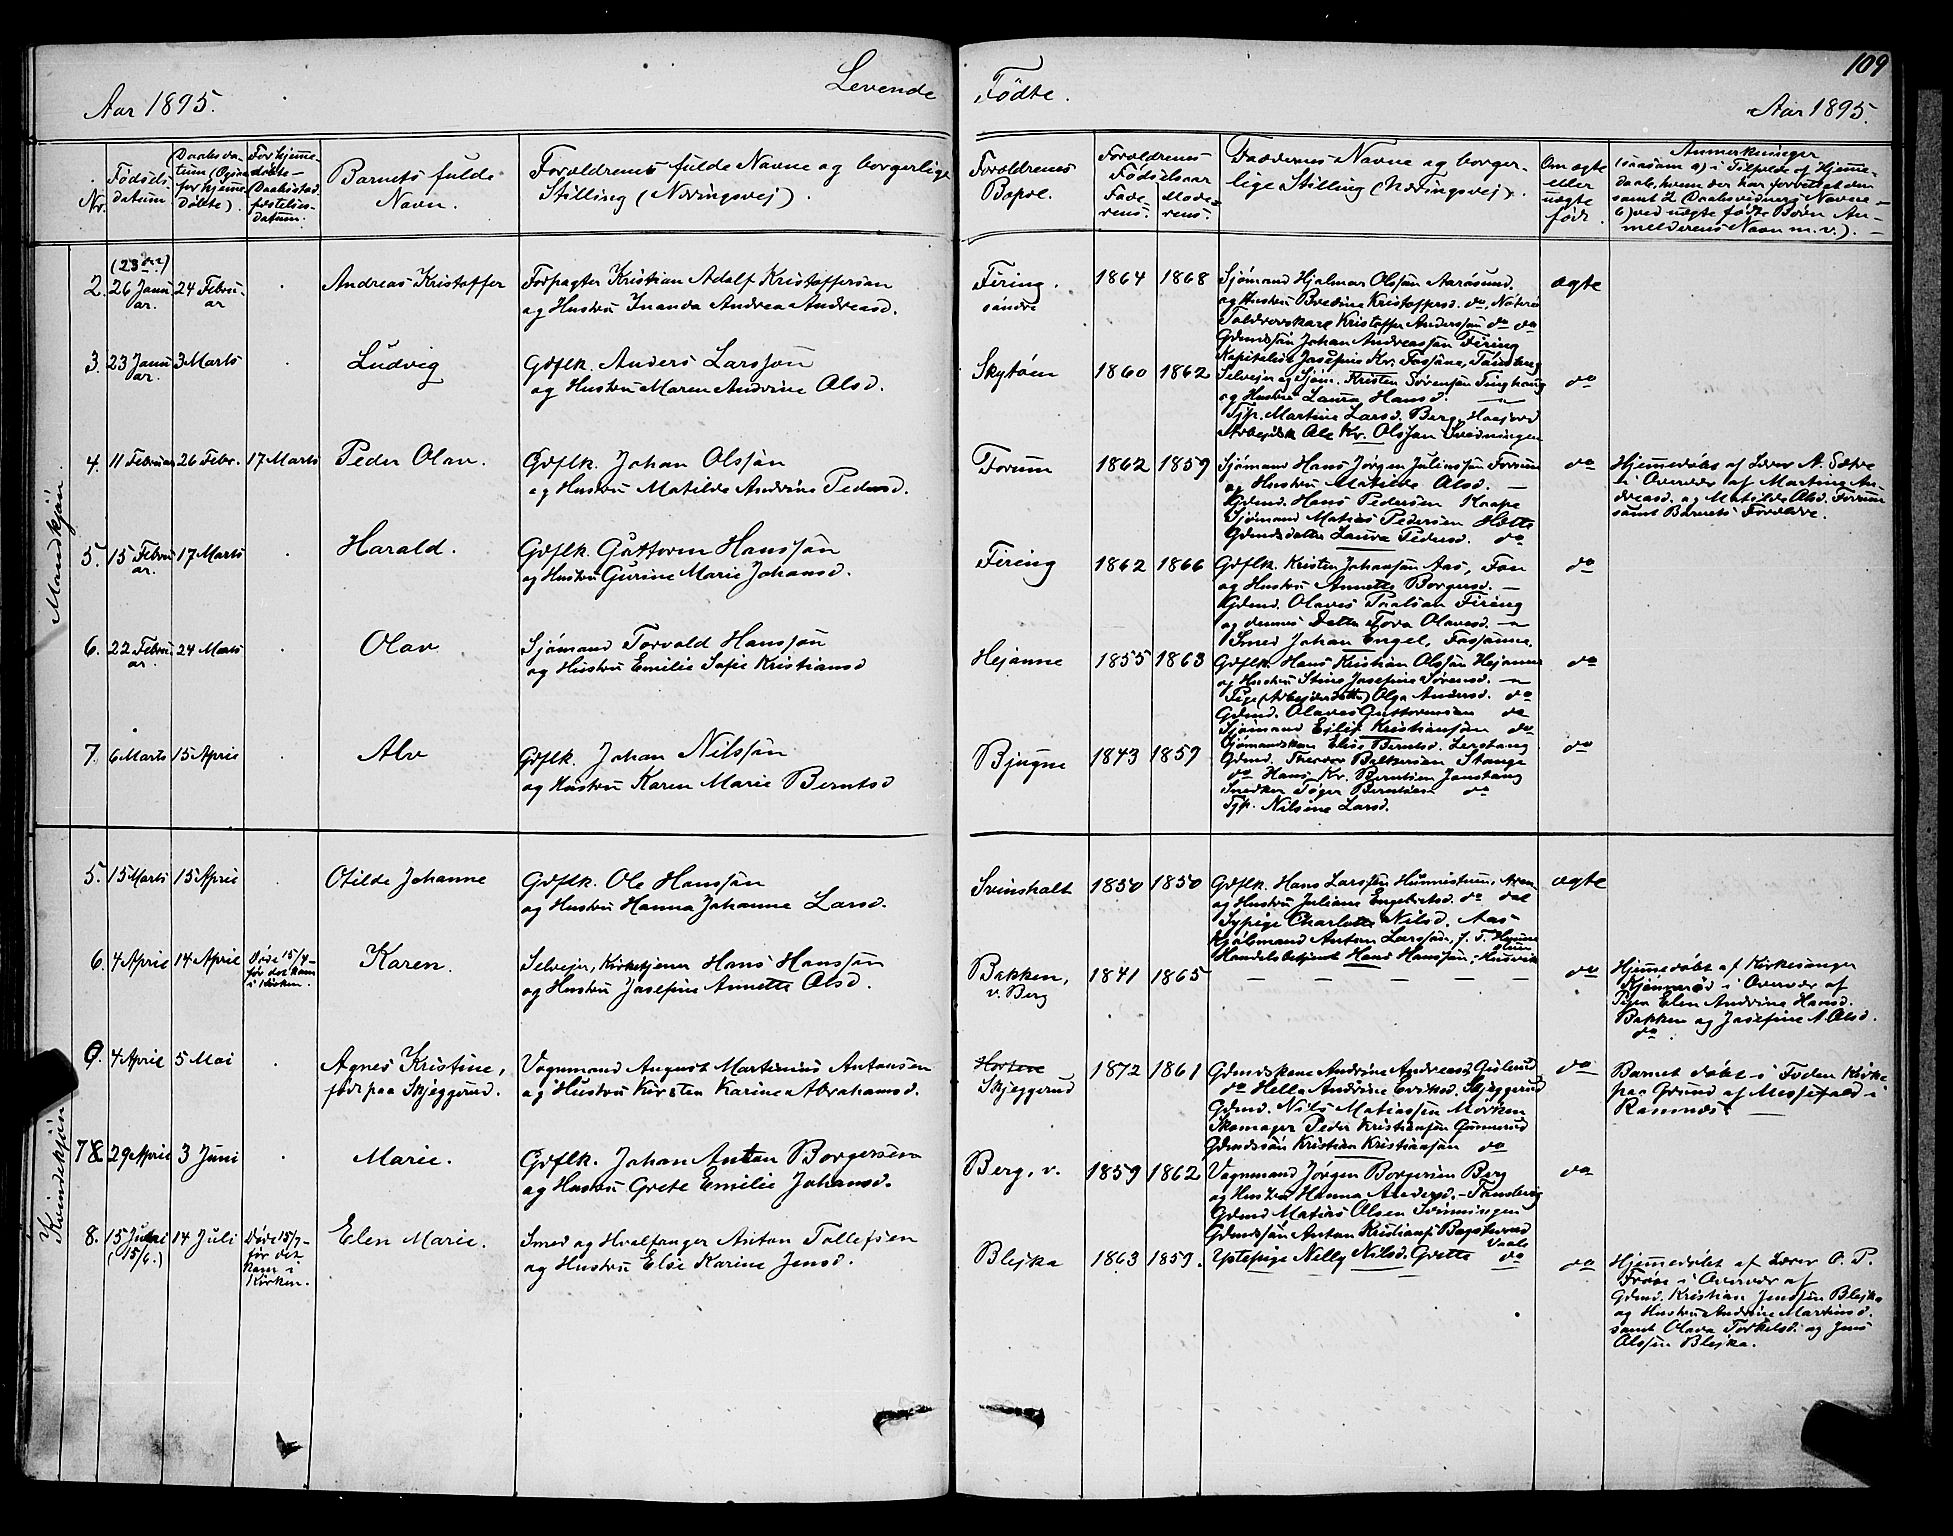 109
Levende Fødte.
Aar 1895. Aar 1895.
Nr.
Fødsels-
datum
Daabsda-
tum (Ogsaa
for hjemme-
døbte).
For hjemme-
døbte
Daabsstad-
festelses-
datum.
Barnets fulde
Navn.
Forældrenes fulde Navne og borgerlige
Stilling (Næringsvej).
Forældrenes
Bopæl.
Forældrenes
Fødselsaar
Fade-
rens.
Mode-
rens.
Faddernes Navne og borger-
lige Stilling (Næringsvej).
Om ægte
eller
uægte
født.
Anmerkninger
(saasom a) i Tilfælde af Hjemme-
daab, hvem der har forrettet den
samt 2 Daabsvidners Navne
b) ved uægte fødte Børn An-
melderens Navn m.v.).
Mandkjøn
2. (23de) 26 Janu
ar. 24 Febru-
ar
Andreas Kristoffer
Forpagter Kristian Adolf Kristoffersen
og Hustru Inanda Andrea Andreasd.
Firing.
søndre
1864 1868
Sjømand Hjalmar Olssøn Aarøsund.
og Hustru Bredine Kristoffersd. do, Nøterø
Toldroerskarl Kristoffer Anderssøn do do
Gdmdssøn Johan Andreassøn Firing
Kapitalist Josefine Kr. Fossane, Tønsberg
ægte
3. 23 Janu
ar. 3 Marts
Ludvig
Gdflk. Anders Larssøn
og Hustru Maren Andrine Olsd.
Skytøm
1860 1862
Selvejer og Sjøm. Kristen Sørensøn Tinghaug
og Hustru Laura Hansd.
Tjp. Martine Larsd. Berg, Haasjord
Arbejdsk Ole Kr. Olssøn Svinningen
do
4. 11 Februar 26 Febr. 17 Marts
Peder Olav.
Gdflk. Johan Olssøn
og Hustru Matilde Andrine Pedersd.
Forum
1862 1859
Sjømand Hans Jørgen Juliussøn Forrum
og Hustru Matilde Olsd.
Gdmd. Hans Pedersen Haape
Sjømand Matias Pedersen Hotte
Gdmdsdatter Laura Pedersd. do
do
Hjemmedøbt af Lærer A. Sætre
i Overvær af Martine An-
dreasd. og Matilde Olsd. Forrum
samt Barnets Forældre.
5. 15 Febru
ar. 17 Marts
Harald.
Gdflk. Guttorm Hanssøn
og Hustru Gurine Marie Johansd.
Firing
1862 1866
Gdflk. Kristen Johanssøn Aas, Fon
og Hustru Annette Borgersd.
Gdmd. Olaves Paulsøn Firing
og dennes Datter Tova Olavesd.
Smed Johan Engel, Fossanne.
do
6. 22 Febru
ar. 24 Marts
Olav
Sjømand Torvald Hanssøn
og Hustru Emilie Sofie Kristiansd
Hejanne
1855 1863
Gdflk. Hans Kristian Olssøn Hejanne
og Hustru Stine Josefine Sørensd.
Pige (Arbejderdatter) Olga Andersd. do
Gdmd. Olaves Guttormsen do
Sjømand Ejlif Kristianssøn do
do
7. 6 Marts 15 April
Alv
Gdflk. Johan Nilssøn
og Hustru Karen Marie Berntsd
Bjugne
1843 1859
Sjømandskone Elise Berntsd. Lerstang
Gdmd. Theodor Belkersen Stange
do Hans Kr. Berntsen Jonstang
Snedker Tøger Berntsen do
Tjp. Nilsine Larsd.
do
Kvindekjøn
5. 15 Marts 15 April
Otilde Johanne
Gdflk. Ole Hanssøn
og Hustru Hanna Johanne Larsd.
Svinshalt
1850 1850
Gdflk. Hans Larssøn Hunnistum, Aren-
og Hustru Juliane Engebretsd. do dal
Sypige Charlotte Nilsd. Aas
Kjølmand Anton Larssøn,
Handelsbetjent Hans Hanssøn, Husvik
ægte
6. 4 April 14 April Døde 15/4
før det kom
i Kirken.
Karen.
Selvejer, Kirketjener Hans Hanssøn
og Hustru Josefine Annette Olsd.
Bakken,
v. Berg
1841 1865
do
Hjemmedøbt af Kirkesanger
Kjønnerød i Overvær af
Pigen Elen Andrine Hansd.
Bakken og Josefine A. Olsd.
do
4 April 5 Mai
Agnes Kristine,
født paa Skjeggerud.
Vognmand August Martinius Antonsen
og Hustru Kirsten Karine Abrahamsd.
Horten
Skjeggerud
1872 1861
Gdmdskone Andrine Andreasd. Gislund,
do Helle Andrine Eriksd. Skjeggerud
Gdmd. Nils Matiassøn Morken
Skomager Peder Kristiansøn Gunnerud
Gdmdssøn Kristian Kristianssøn do
do
Barnet døbt i Foden Kirke
paa Grund af Messefald i
Ramnæs.
78. 29 April 3 Juni
Marie.
Gdflk. Johan Anton Borgersen
og Hustru Grete Emilie Johansd.
Berg, v.
1859 1862
Vognmand Jørgen Borgersen Berg
og Hustru Hanna Andersd. – Tønsberg
Gdmd Matias Olsen Svinningen
Gdmdssøn Anton Kristians Bagskerud
Vaale
Syepige Nelly Nilsd. Grette do
do
8. 15 Juni
(15/6.) 14 Juli Døde 15/7
før det
kom i
Kirken.
Elen Marie.
Smed og Hvalfanger Anton Tollefsen
og Hustru Else Karine Jensd.
Blejka
1863 1859.
do
Hjemmedøbt af Lærer O. P.
Frøse i Overvær af
Gdmd. Kristian Jenssøn Blejka
og Hustru Andrine Martinsd.
samt Olava Torkelsd. og Jens
Olssøn Blejka.